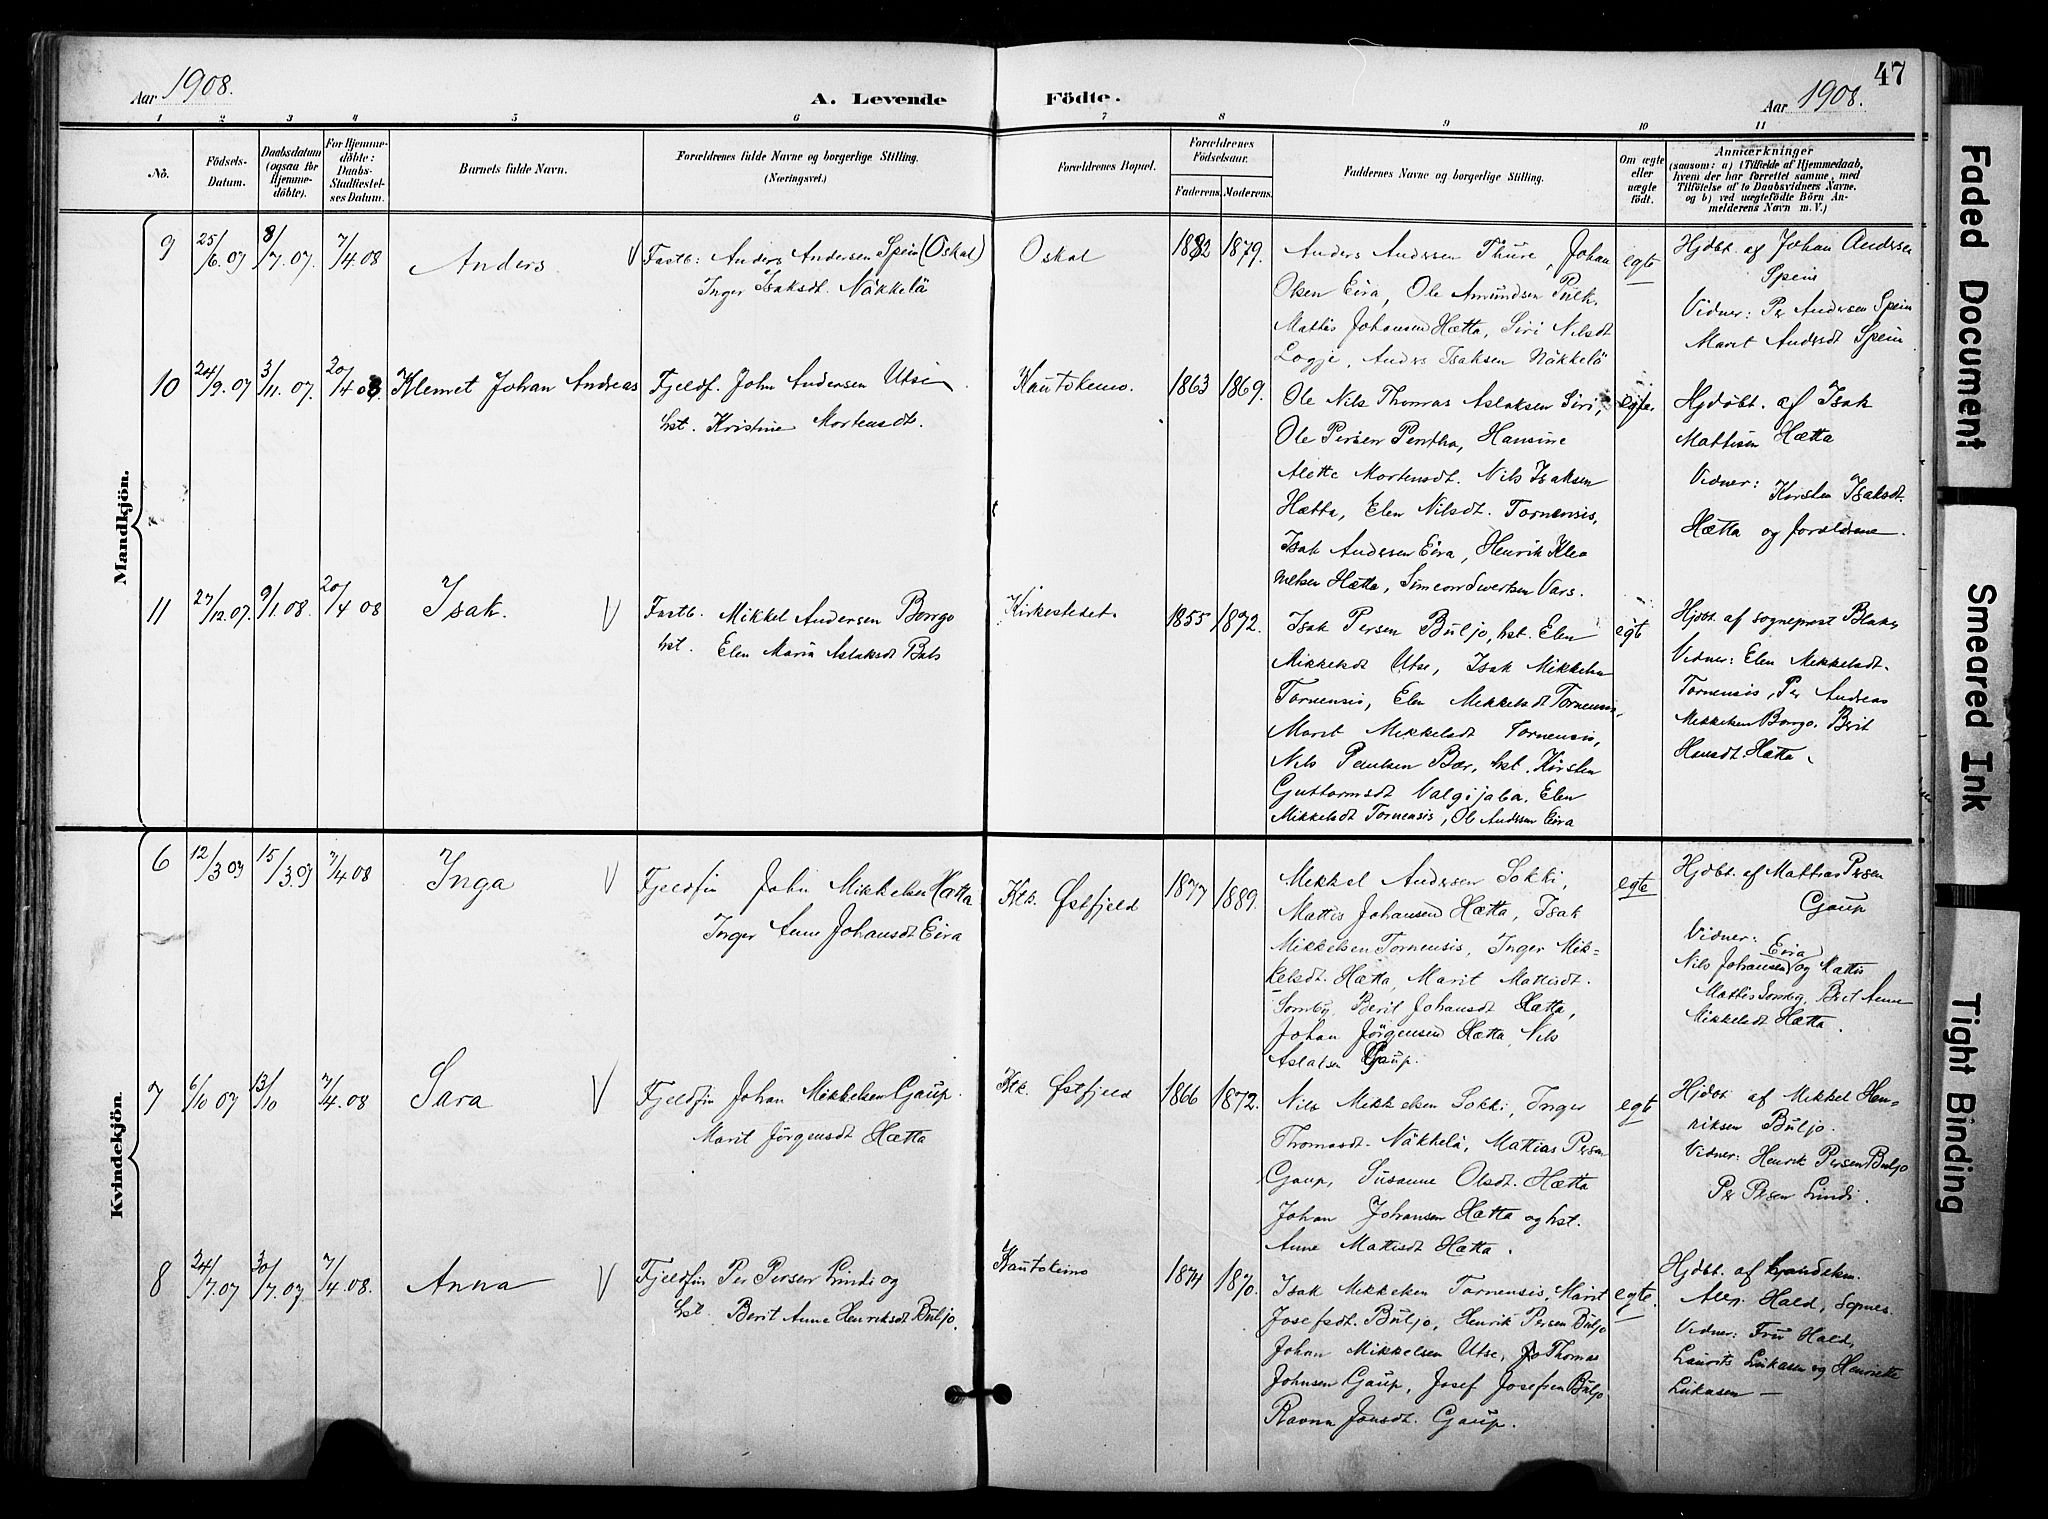 Aar 1908.
A. Levende Födte.
Aar 1908.
47
1 2 3 4 5 6 7 8 9 10 11
Nö.
Födsels-
Datum.
Daabsdatum
(ogsaa for
Hjemme-
döbte).
For Hjemme-
döbte:
Daabs-
Stadfæstel-
ses Datum.
Barnets fulde Navn.
Forældrenes fulde Navne og borgerlige Stilling.
(Næringsvei.)
Forældrenes Bopæl.
Forældrenes
Födselsaar.
Faderens. Moderens.
Faddernes Navne og borgerlige Stilling.
Om ægte
eller
uægte
födt.
Anmærkninger
(saasom: a) i Tilfælde af Hjemmedaab,
hvem der har forrettet samme, med
Tilföielse af to Daabsvidners Navne,
og b) ved uægtefödte Börn An-
melderens Navn m. V.)
Mandkjön.
9 25/6.07 8/7.07. 7/4.08 Anders V
Fastb: Anders Andersen Spein (Oskal)
Inger Isaksdt. Näkkelä
Oskal 1882 1879.
Anders Andersen Thure, Johan
Olsen Eira, Ole Amundsen Pulk.
Mattis Johansen Hætta, Siri Nilsdt
Logje, Anders Isaksen Näkkelä
egte
Hjdbt. af Johan Andersen
Spein
Vidner: Per Andersen Spein
Marit Andersdt Spein
10 24/9.07 3/11.07. 20/4.08 Klemet Johan Andreas
Fjeldf. John Andersen Utsi
hst. Kristine Mortensdt.
Kautokeino. 1863 1869.
Ole Nils Thomas Aslaksen Siri,
Ole Persen Pentha, Hansine
Alette Mortensdt. Nils Isaksen
Hætta, Elen Nilsdt. Tornensis,
Isak Andersen Eira, Henrik Kle
metsen Hætta, Vars.
egte.
Hjdöbt. af Isak
Mattisen Hætta
Vidner: Kirsten Isaksdt.
Hætta og forældrene.
11 27/12.07. 9/1.08. 20/4 08 Isak. V
Fastb. Mikkel Andersen Bongo
hst. Elen Maria Aslaksdt Bals
Kirkestedet. 1855 1872.
Isak Persen Buljo, hst. Elen
Mikkelsdt Utse, Isak Mikkelsen
Tornensis, Elen Mikkelsdt Tornensis,
Marit Mikkelsdt Tornensis,
Nils Paulsen Bær, hst. Kirsten
Guttormsdt Valgijaba. Elen
Mikkelsdt Tornensis, Ole Andersen Eira
egte
Hjdbt. af sogneprest Blakes
Vidner: Elen Mikkelsdt.
Tornensis, Per Andreas
Mikkelsen Bongo. Berit
Hansdt. Hætta.
Kvindekjön.
6 12/3 07 15/3.07 7/4.08 Inga V
Fjeldfin John Mikkelsen Hætta
Inger Anne Johansdt Eira
Ktk. Østfjeld 1877 1889.
Mikkel Andersen Sokki,
Mattis Johansen Hætta, Isak
Mikkelsen Tornensis, Inger Mik-
kelsdt. Hætta, Marit Mattisdt.
Somby, Berit Johansdt Hætta,
Johan Jörgensen Hætta, Nils
Aslaksen Gaup.
egte
Hjdbt. af Mattias Persen
Gaup
Vidner:
Nils Johansen Eira og Mattis
Mattis Somby, Brit Anne
Mikkelsdt Hætta.
7 6/10 07 13/10 7/4.08 Sara V
Fjeldfin Johan Mikkelsen Gaup.
Marit Jörgensdt Hætta
Ktk. Østfjeld 1866 1872.
Nils Mikkelsen Sokki, Inger
Thomasdt. Näkkelä, Mattias Persen
Gaup, Susanne Olsdt. Hætta
Johan Johansen Hætta og hst.
Anne Mattisdt Hætta.
egte
Hjdöt. af Mikkel Hen-
riksen Buljo.
Vidner: Henrik Persen Buljo
Per Persen Lindi.
8 24/7.07 30/7.07 7/4.08. Anna V
Fjeldfin Per Persen Lindi og
hst. Berit Anne Henriksdt Buljo.
Kautokeino 1874 1870.
Isak Mikkelsen Tornensis, Marit
Josefsdt. Buljo, Henrik Persen Buljo
Johan Mikkelsen Utse, Thomas
Johnsen Gaup, Josef Josefsen Buljo
Ravna Jonsdt. Gaup.
egte.
Hjdbt. af
Alex. Hald, Sopnes.
Vidner: Fru Hald,
Laurits Lukasen og Henriette
Lukasen —
Faded Document
Smeared Ink
Tight Binding